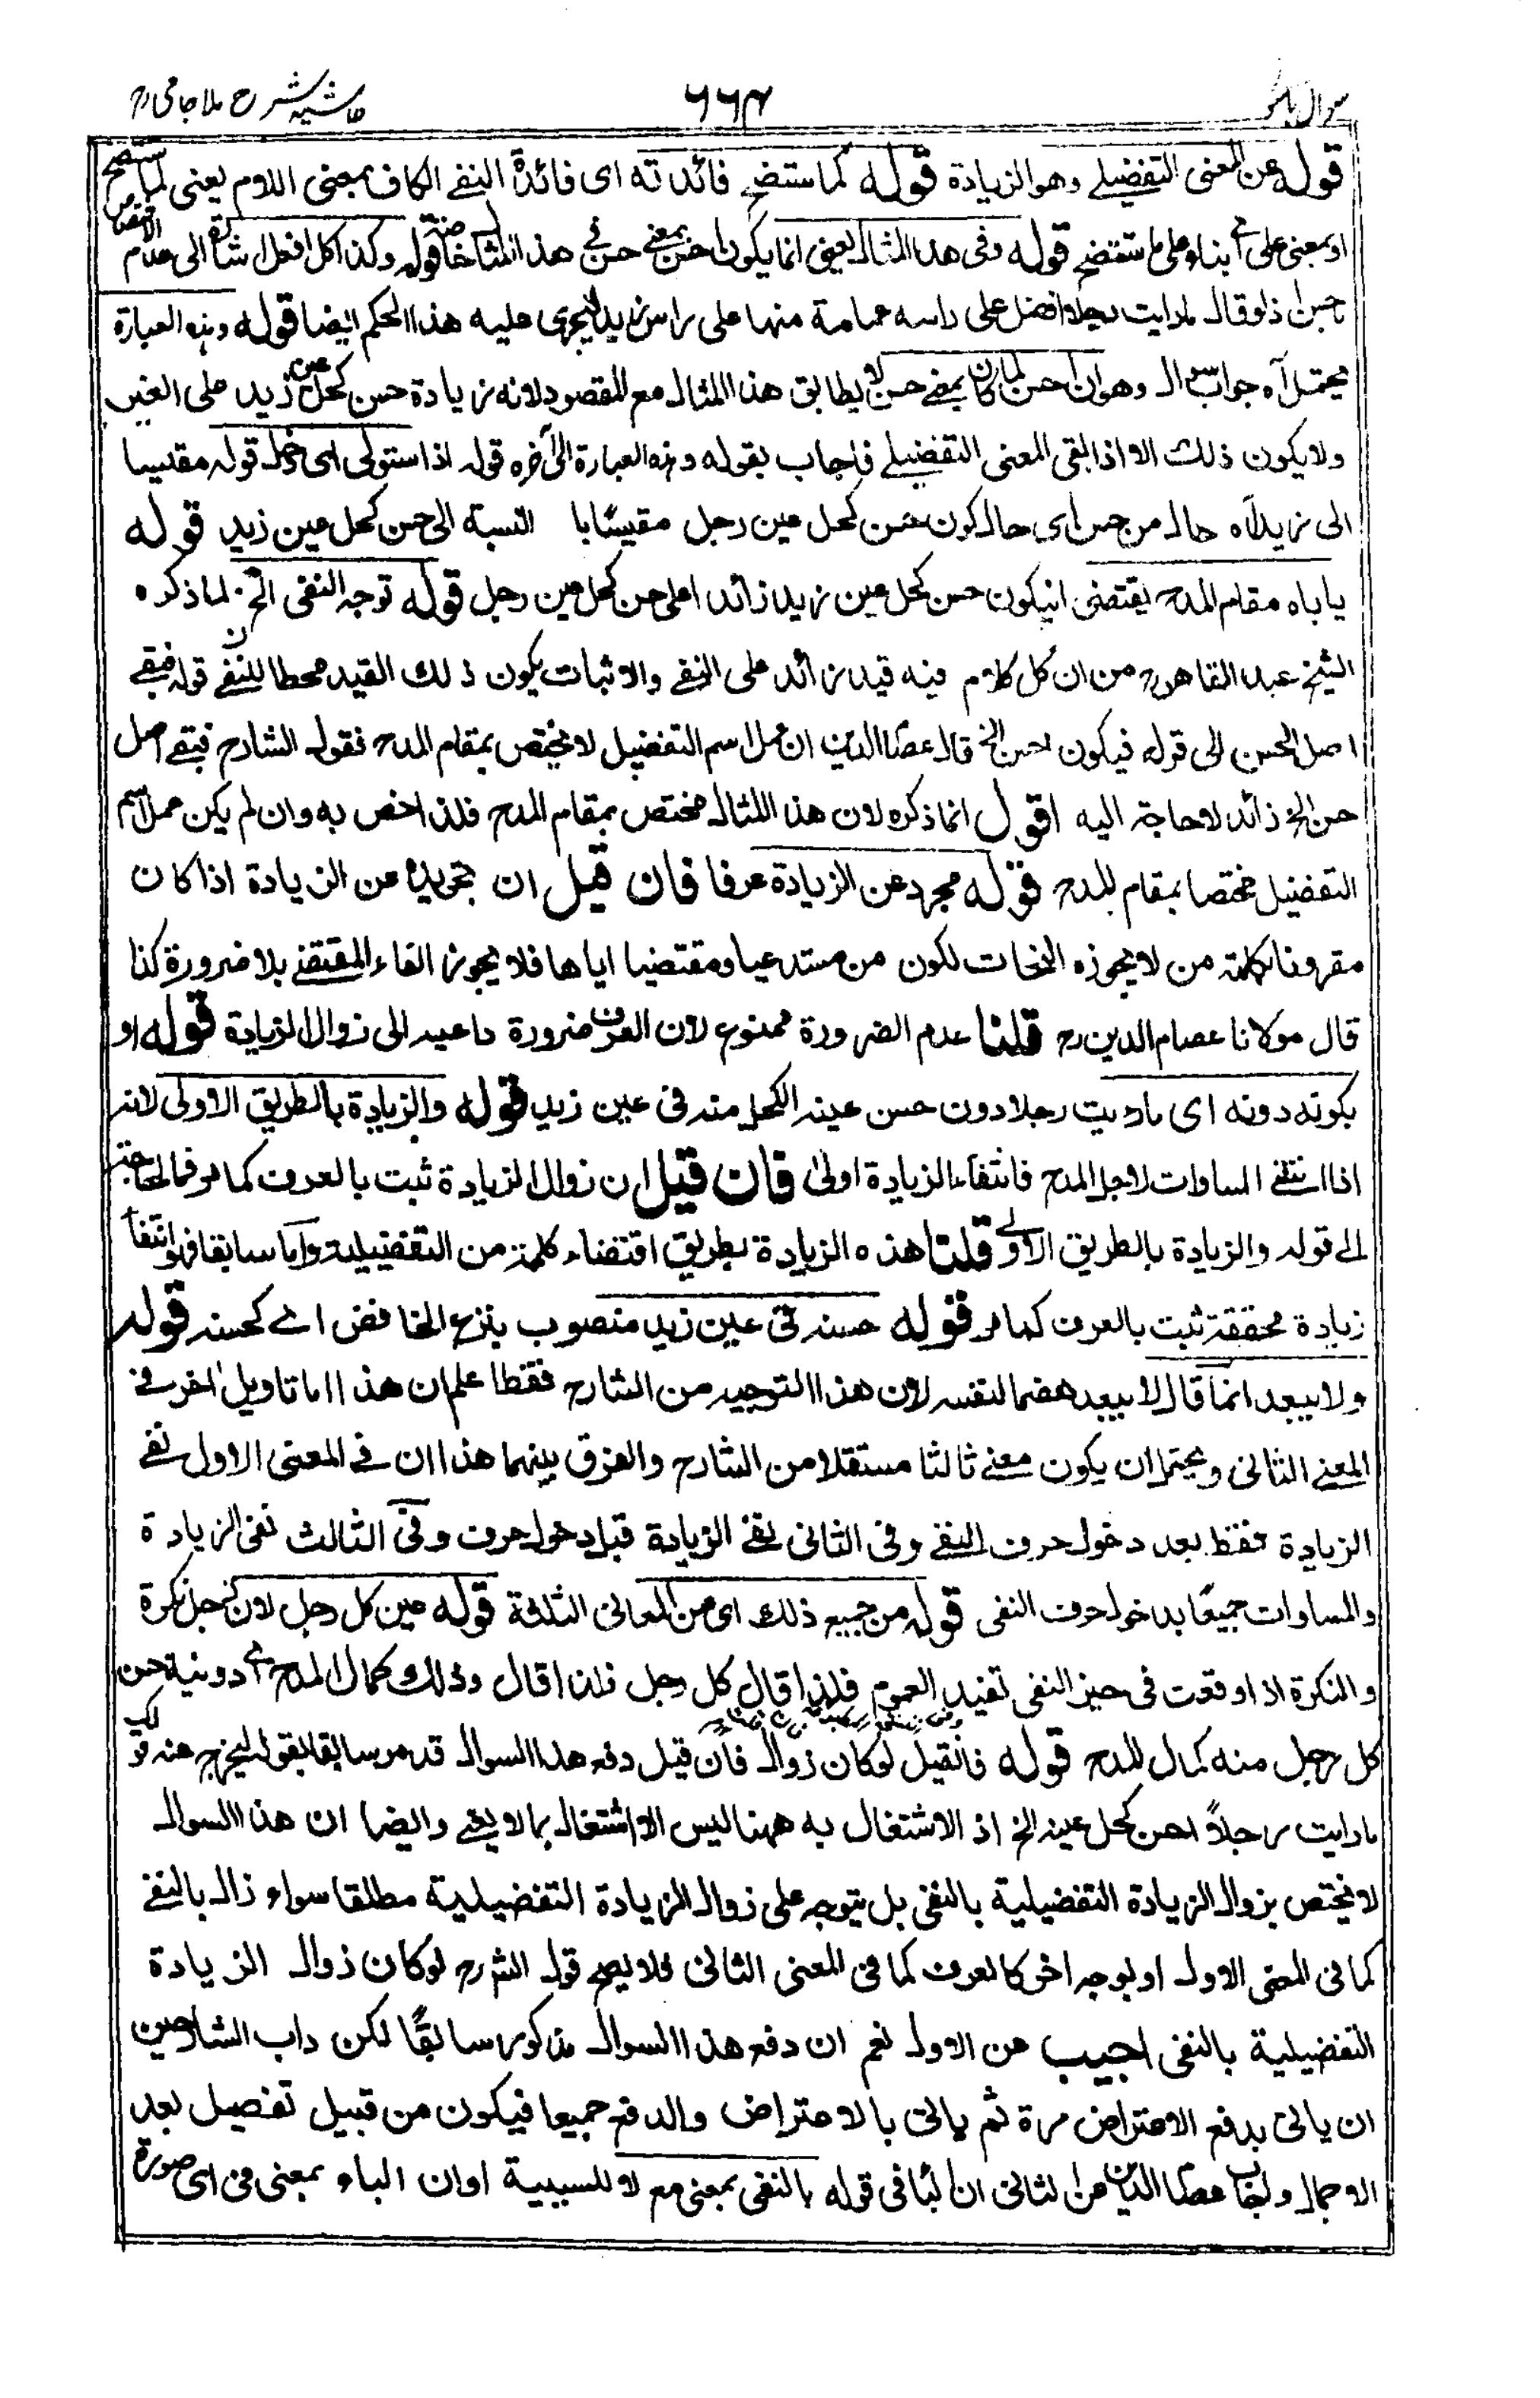 حاشیہ شرح ملا جامی رح ۶۶۴ سوال باسو
قوله عن المعنى التفضيلے وهو الزيادة قوله كما ستتضح فائدته اى فائدة النفے الكاف بمعنى اللام يعنى لما ستتضح
او بمعنى على اے بناء على ما ستتضح قوله وفى هذا المثال يعنى انما يكون احسن بمعنے حسن فے هذا المثال خاصة قوله وكذا كل افعل اشارة الى عدم الاختصاص
باحسن اذ لو قال ما رايت رجلا افضل على راسه عمامة منها على راس زيد ليجرى عليه هذا الحكم ايضا قوله وہذہ العبارة
يحتمل آہ جواب سوال وهو ان احسن لما كان بمعنے حسن لا يطابق هذا المثال مع المقصود لانه زيادة حسن كحل عين زيد على الغير
ولا يكون ذلك الا اذا بقى المعنى التفضيلے فاجاب بقوله وہذہ العبارة الى آخره قوله اذا استولى اى دخل قوله مقيسا
الى زيد آه حال من حسن اى حال كون حسن كحل عين رجل مقيسًا با النسبة الى حسن كحل عين زيد قوله
ياباه مقام المدح يقتضى انيكون حسن كحل عين زيد زائدا على حسن كحل عين رجل قوله توجه النفى الخ لما ذكره
الشيخ عبد القاهر رح من ان كل كلام فيه قيد زائد على النفے والاثبات يكون ذلك القيد محطا للنفے قوله فبقے
اصل الحسن الى قوله فيكون احسن الخ قال عصام الدين ان عمل اسم التفضيل لا يختص بمقام المدح فقول الشارح فبقے اصل
حسن الخ زائد لا حاجة اليه اقول انما ذكره لان هذا المثال مختص بمقام المدح فلذا خص به وان لم يكن عمل اسم
التفضيل مختصا بمقام المدح قوله مجرد عن الزيادة عرفا فان قيل ان تجريده عن الزيادة اذا كان
مقرونا بكلمة من لا يجوزه النحات لكون من مستدعيا ومقتضيا اياها فلا يجوز الغاء المقتضے بلا ضرورة كذا
قال مولانا عصام الدين رح قلنا عدم الضرورة ممنوع لان العرف ضرورة داعيه الى زوال الزيادة قوله او
بكونه دونه اى ما رايت رجلا دون حسن عينه الكحل منه فى عين زيد قوله والزيادة بالطريق الاولى لانه
اذا انتفے المساوات لاجل المدح فانتفاء الزيادة اولى فان قيل ان زوال الزيادة ثبت بالعرف كما مر فما الحاجة
الے قوله والزيادة بالطريق الاولے قلنا هذه الزيادة بطريق اقتضاء كلمة من التفضيلية واما سابقا فهو انتفاء
زيادة محققة ثبت بالعرف كما مر قوله حسنه فى عين زيد منصوب بنزع الخافض اے كحسنه قوله
ولا يبعد انما قال لا يبعد هضما لنفسه لان هذا التوجيه من الشارح فقط اعلم ان هذا اما تاويل اخر فے
المعنے الثانى ويحتمل ان يكون معنے ثالثا مستقلا من الشارح والفرق بينهما هذا ان فے المعنى الاول نفے
الزيادة فقط بعد دخول حرف النفے وفى الثانى نفے الزيادة قبل دخول حرف وفى الثالث نفى الزيادة
والمساوات جميعًا بدخول حرف النفى قوله من جميع ذلك اى من المعانى الثلثة قوله عين كل رجل لان رجل نكرة
والنكرة اذا وقعت فى حيز النفى تفيد العموم فلذا قال كل رجل فلذا قال وذلك كمال المدح اے دونية حسن
كل رجل منه كمال المدح قوله فانقيل لو كان زوال فان قيل دفع هذا السوال قد مر سابقا بقوله ليخرج عنه قولك
ما رايت رجلاً احسن كحل عينه الخ اذ الاشتغال به ههنا ليس الا اشتغال بما لا يعنے وايضا ان هذا السوال
لا يختص بزوال الزيادة التفضيلية بالنفى بل يتوجه على زوال الزيادة التفضيلية مطلقا سواء زال بالنفے
كما فى المعنى الاول او بوجه اخر كالعرف كما فى المعنى الثانى فلا يصح قول الش رح لو كان زوال الزيادة
التفضيلية بالنفى اجيب عن الاول نعم ان دفع هذا السوال مذكور سابقًا لكن داب الشارحين
ان ياتى بدفع الاعتراض مرة ثم ياتى بالاعتراض والدفع جميعا فيكون من قبيل تفصيل بعد
الاجمال واجاب عصام الدين عن الثانى ان البا فى قوله بالنفى بمعنى مع لا للسببية او ان الباء بمعنى فى اى صورة